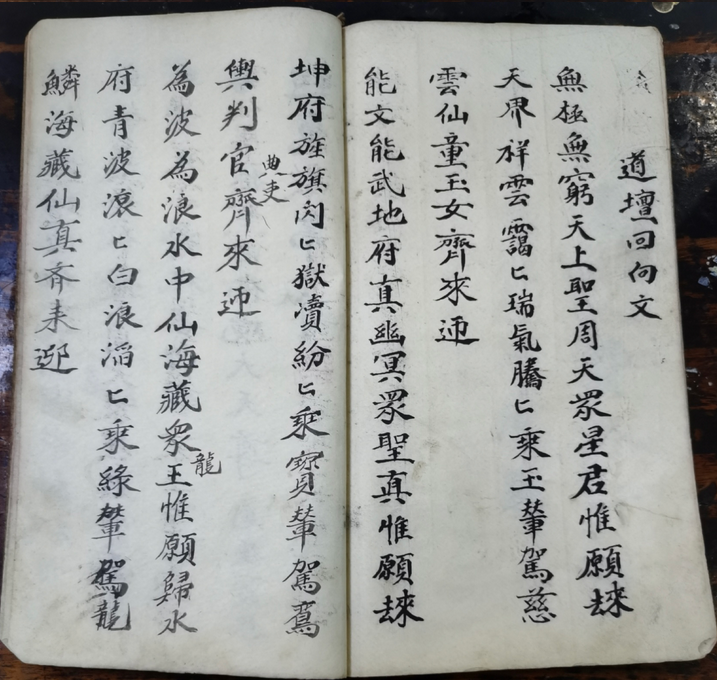 道壇回向文
無極無窮天上聖周天眾星君惟願
天界祥雲靄匕瑞氣騰匕乘玉輦駕慈
雲仙童玉女齊來迎
能文能武地府真幽冥眾聖真惟願
坤府旌旗閃匕獄瀆紛匕乘寶輦駕鸞
輿判官典吏齊來迎
為波為浪水中仙海藏眾龍王惟願歸水
府青波滾匕白浪滔匕乘綠輦駕龍
鱗海藏仙真斉耒迎